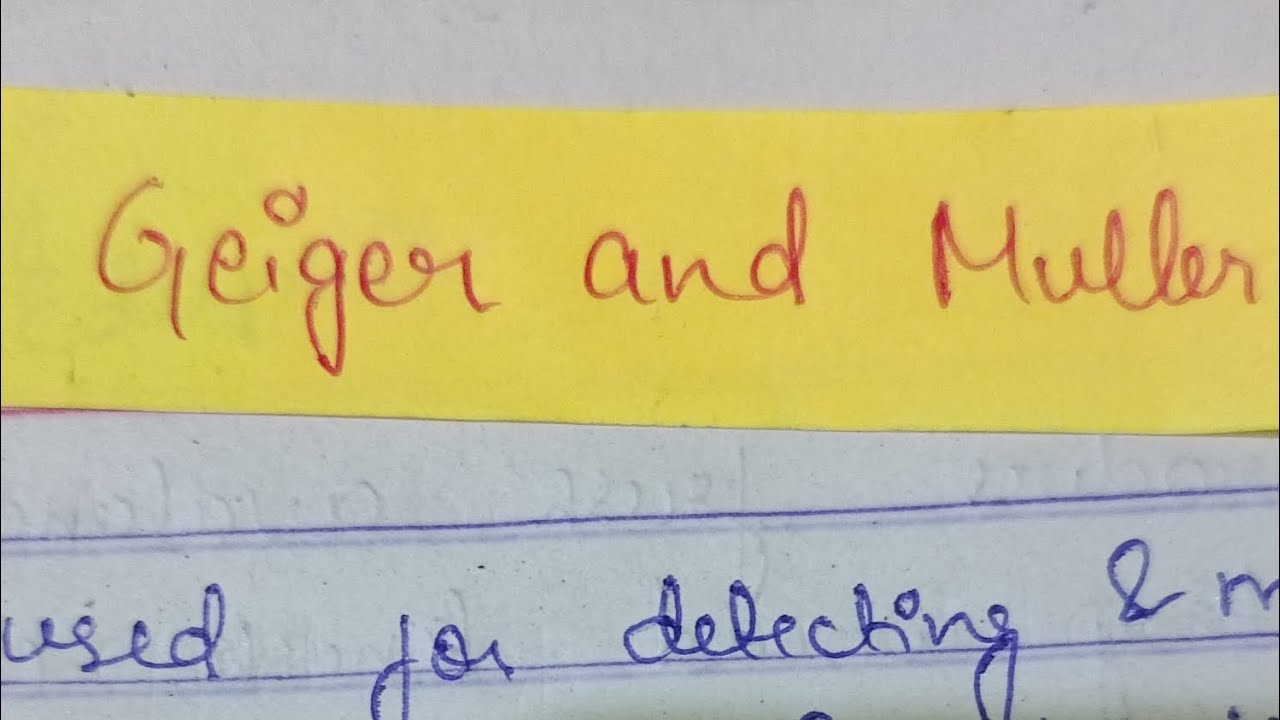 Geiger and Muller
used for detecting &